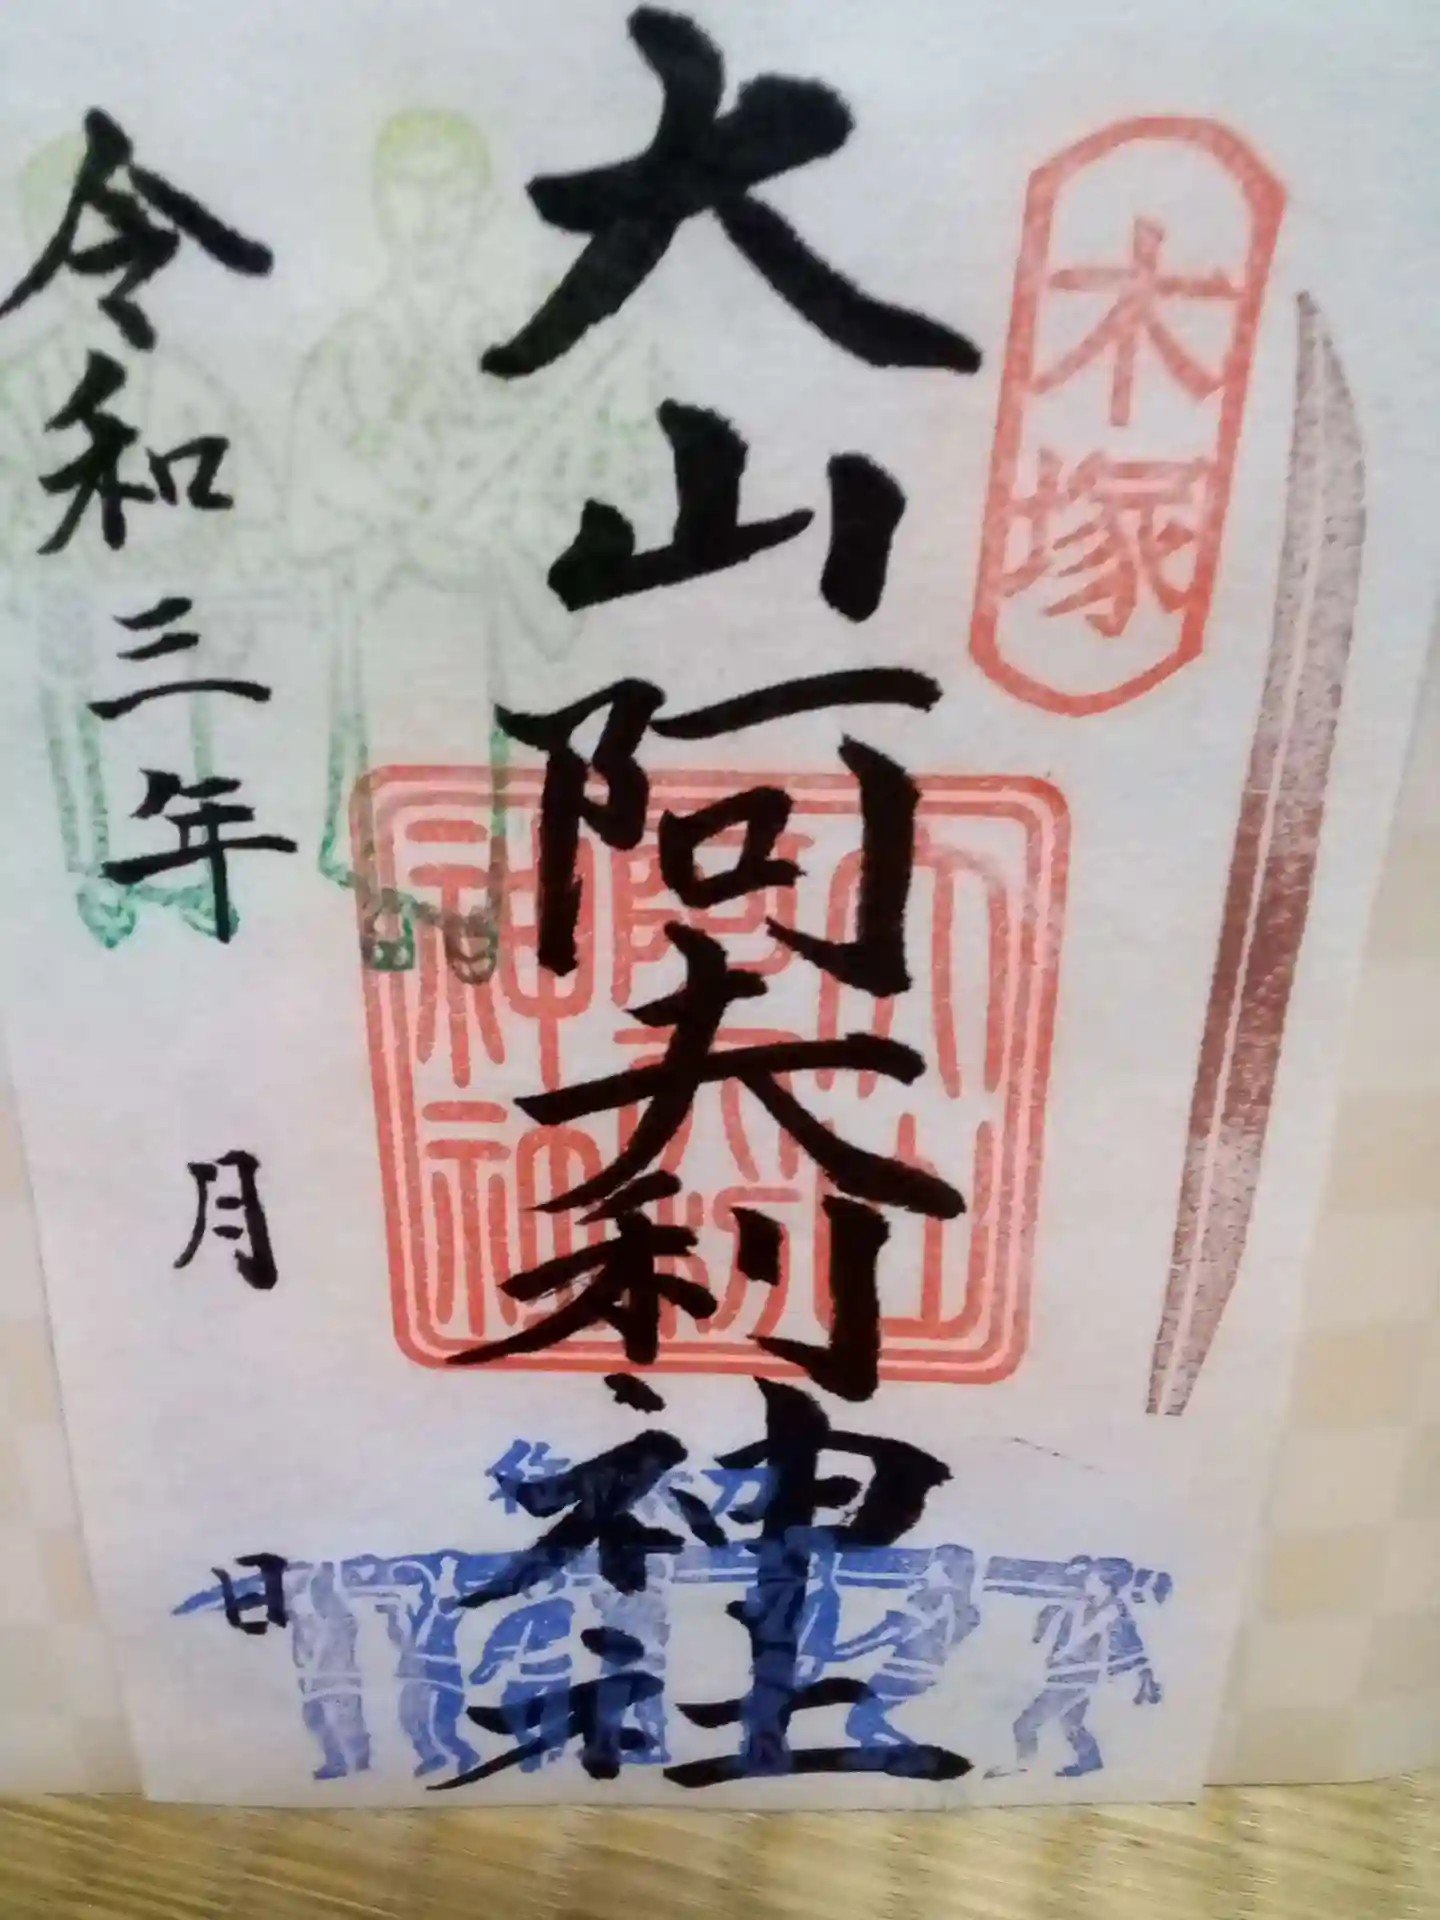 木塚
大山阿夫利神社
大山
阿夫利
神社
令和三年
月
日